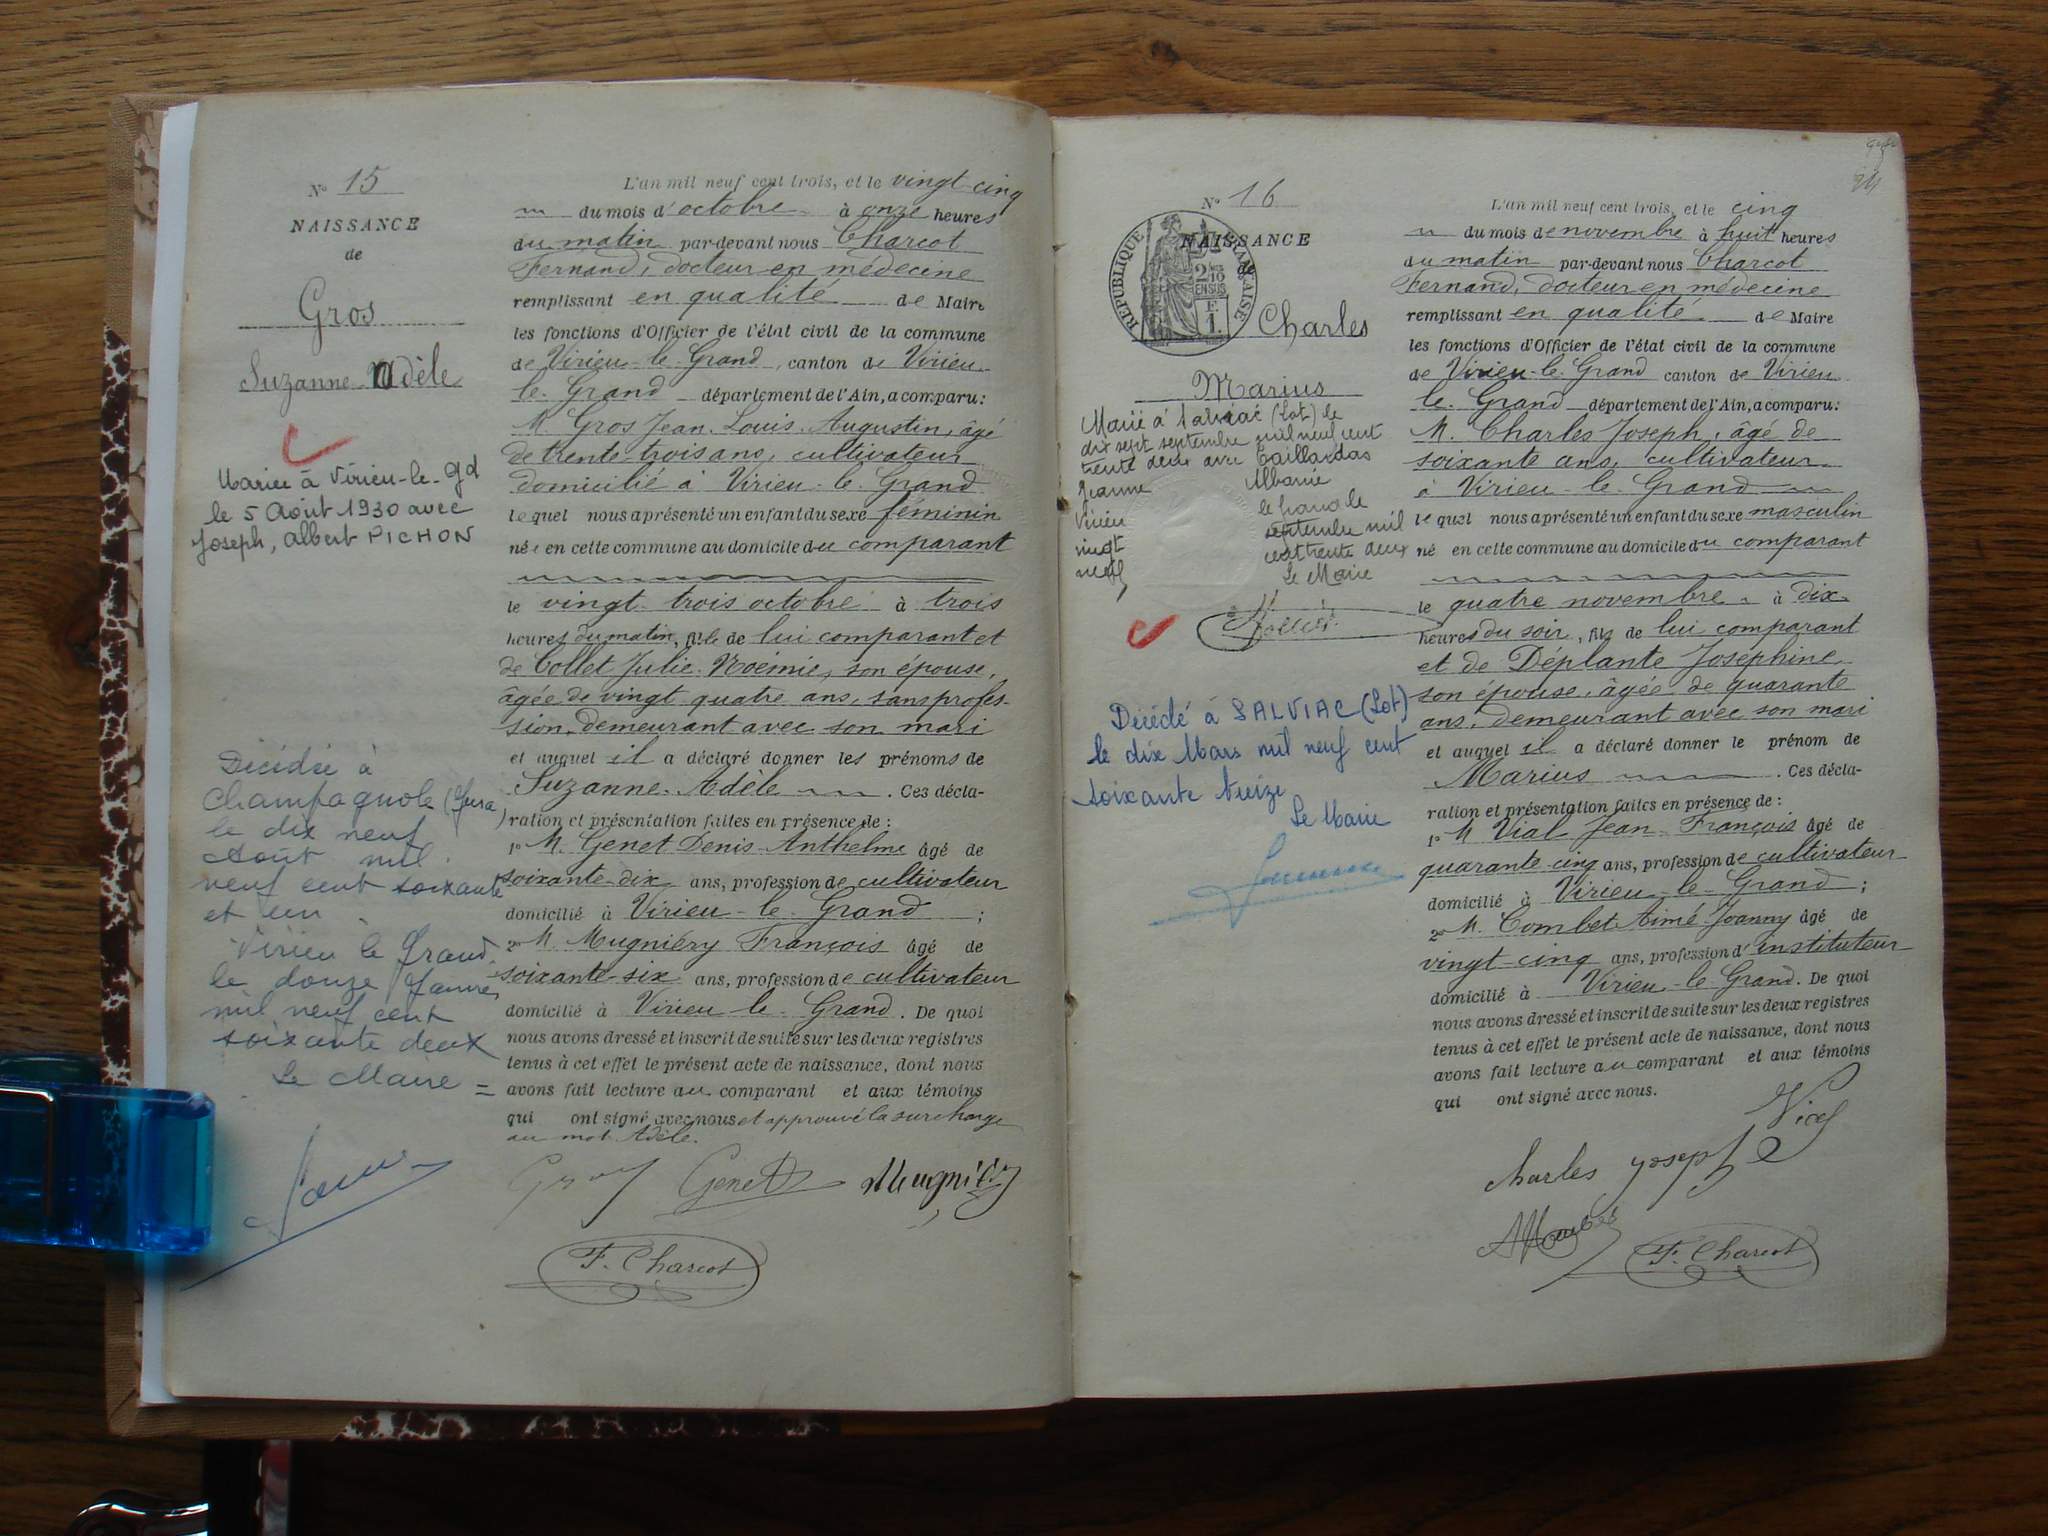 N° 15
NAISSANCE
de
Gros
Suzanne Adèle
Mariée à Virieu-le-Gd
le 5 Août 1930 avec
Joseph, Albert PICHON
Décédée à
Champagnole (Jura)
le dix neuf
Août mil
neuf cent soixante
et un.
Virieu le Grand,
le douze Janvier
mil neuf cent
soixante deux
Le Maire =
L'an mil neuf cent trois, et le vingt-cinq
du mois d'octobre à onze heures
du matin par-devant nous Charcot
Fernand, docteur en médecine
remplissant en qualité de Maire
les fonctions d'Officier de l'état civil de la commune
de Virieu-le-Grand, canton de Virieu-
le-Grand département de l'Ain, a comparu:
M. Gros Jean-Louis-Augustin, âgé
de trente-trois ans, cultivateur
domicilié à Virieu-le-Grand
lequel nous a présenté un enfant du sexe féminin
née en cette commune au domicile du comparant
le vingt-trois octobre à trois
heures du matin, fille de lui comparant et
de Collet Julie-Noémie, son épouse,
âgée de vingt quatre ans, sans profes-
sion, demeurant avec son mari
et auquel il a déclaré donner les prénoms de
Suzanne-Adèle. Ces décla-
ration et présentation faites en présence de :
1° M. Genet Denis-Anthelme âgé de
soixante-dix ans, profession de cultivateur
domicilié à Virieu-le-Grand ;
2° M. Mugniéry François âgé de
soixante-six ans, profession de cultivateur
domicilié à Virieu-le-Grand. De quoi
nous avons dressé et inscrit de suite sur les deux registres
tenus à cet effet le présent acte de naissance, dont nous
avons fait lecture au comparant et aux témoins
qui ont signé avec nous et approuvé la surcharge
au mot Adèle.
Gros Genet Mugniéry
F. Charcot
24
N° 16
NAISSANCE
de
RÉPUBLIQUE FRANÇAISE
2/10 EN SUS
F
1
Charles
Marius
Marié à Salviac (Lot) le
dix sept septembre mil neuf cent
trente deux avec Taillardas
Jeanne Albanie
Virieu le grand le
vingt septembre mil
neuf cent trente deux
Le Maire
Décédé à SALVIAC (Lot)
le dix Mars mil neuf cent
soixante treize
Le Maire
L'an mil neuf cent trois, et le cinq
du mois de novembre à huit heures
du matin par-devant nous Charcot
Fernand, docteur en médecine
remplissant en qualité de Maire
les fonctions d'Officier de l'état civil de la commune
de Virieu-le-Grand canton de Virieu-
le-Grand département de l'Ain, a comparu:
M. Charles Joseph, âgé de
soixante ans, cultivateur
à Virieu-le-Grand
lequel nous a présenté un enfant du sexe masculin
né en cette commune au domicile du comparant
le quatre novembre à dix
heures du soir, fils de lui comparant
et de Déplante Joséphine
son épouse, âgée de quarante
ans, demeurant avec son mari
et auquel il a déclaré donner le prénom de
Marius. Ces décla-
ration et présentation faites en présence de :
1° M Vial Jean-François âgé de
quarante-cinq ans, profession de cultivateur
domicilié à Virieu-le-Grand ;
2° M. Combet Aimé-Joanny âgé de
vingt-cinq ans, profession d'instituteur
domicilié à Virieu-le-Grand. De quoi
nous avons dressé et inscrit de suite sur les deux registres
tenus à cet effet le présent acte de naissance, dont nous
avons fait lecture au comparant et aux témoins
qui ont signé avec nous.
Vial
Charles Joseph
F. Charcot